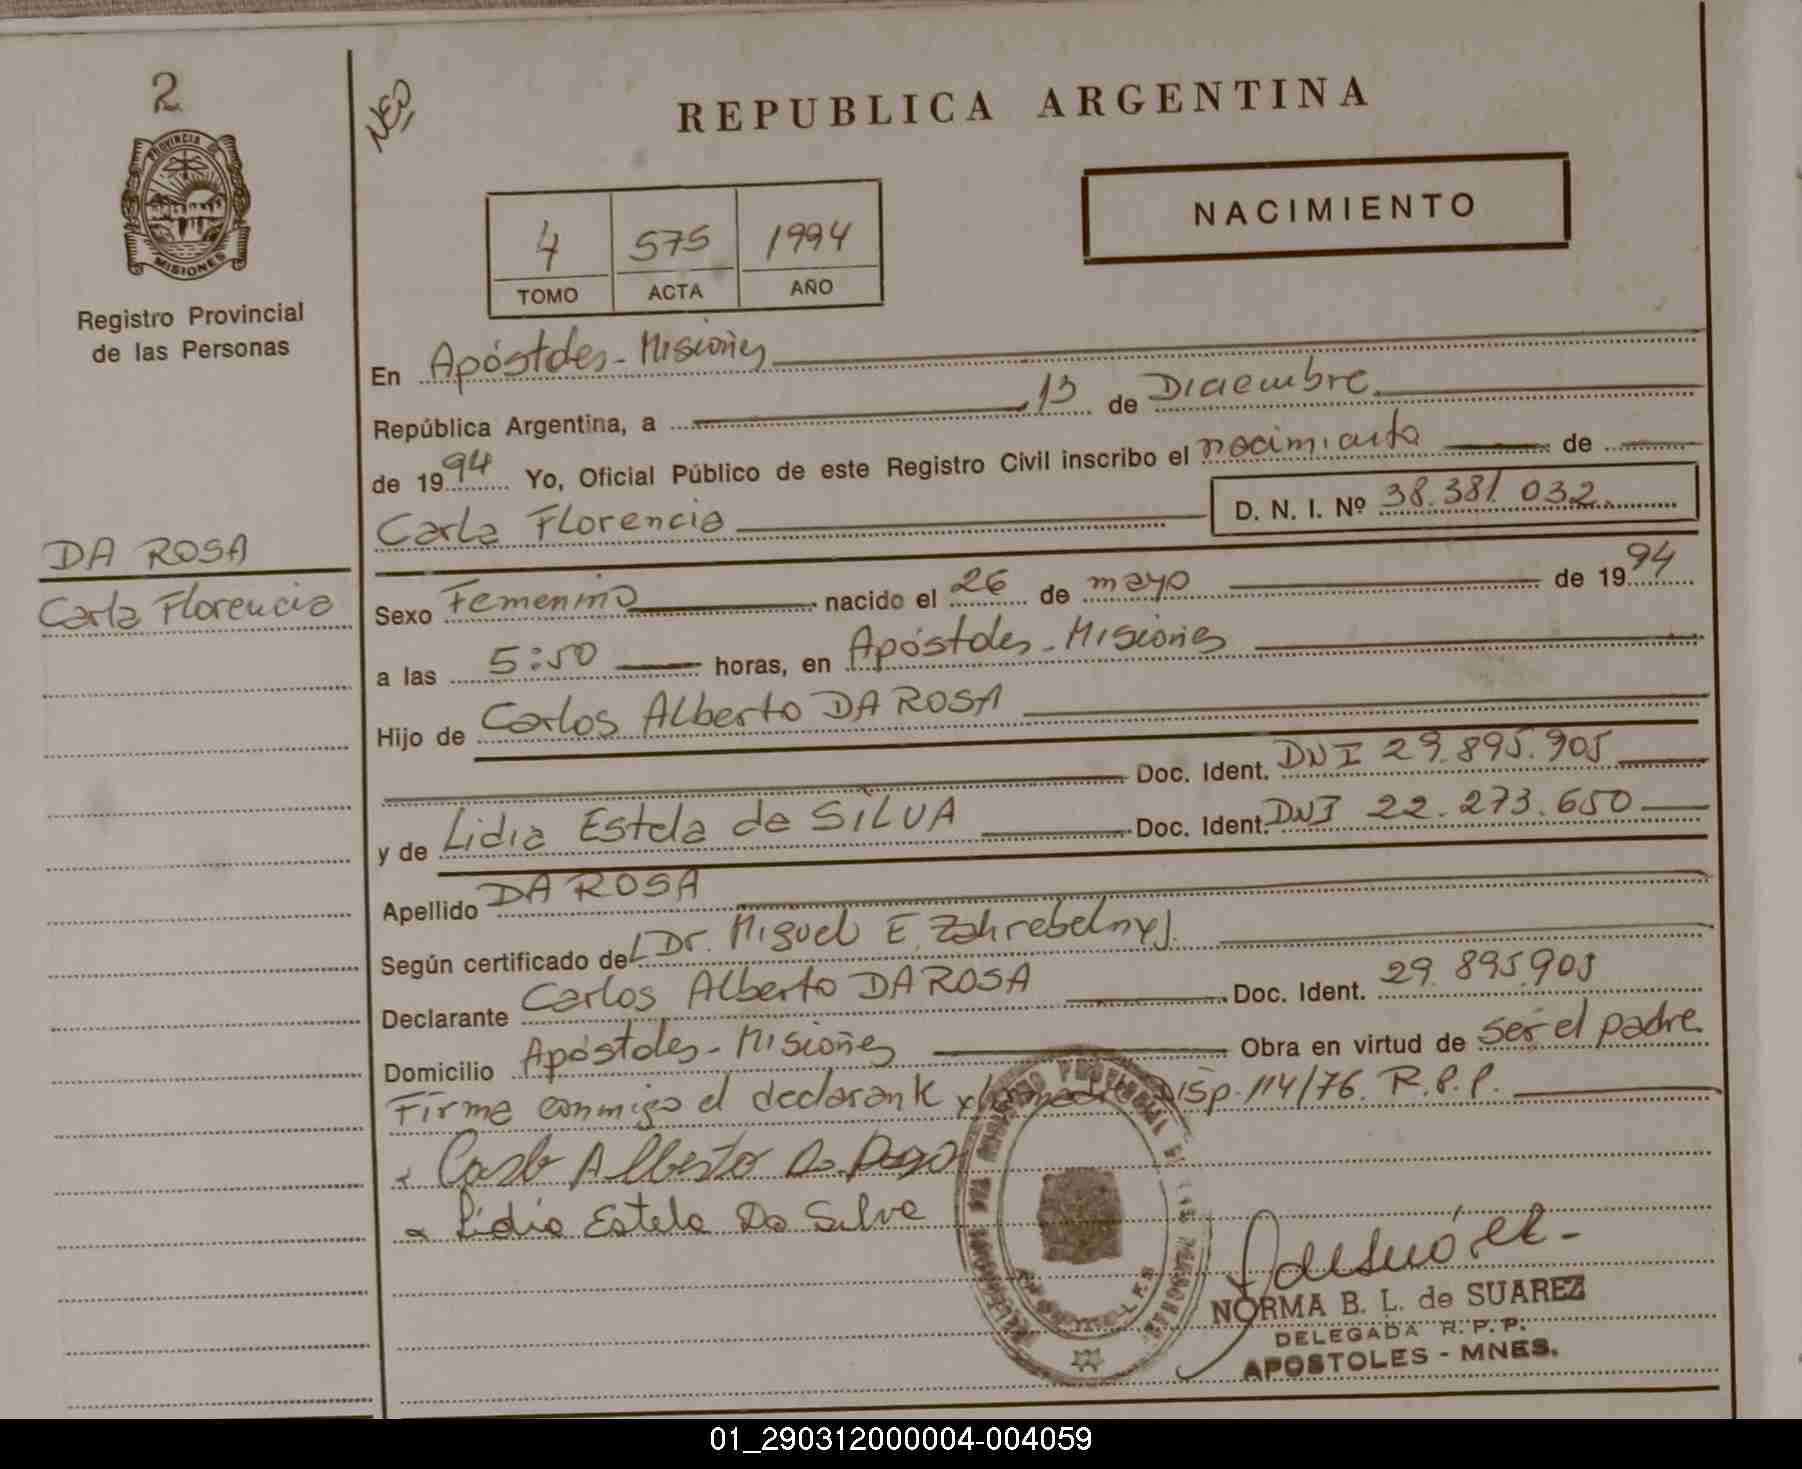 2
NEO
REPUBLICA ARGENTINA
PROVINCIA DE
MISIONES
NACIMIENTO
4 575 1994
TOMO ACTA AÑO
Registro Provincial
de las Personas
En Apóstoles - Misiones
República Argentina, a 13 de Diciembre
de 1994 Yo, Oficial Público de este Registro Civil inscribo el nacimiento de
Carla Florencia D. N. I. Nº 38.381.032
DA ROSA
Carla Florencia
Sexo Femenino nacido el 26 de mayo de 1994
a las 5:50 horas, en Apóstoles - Misiones
Hijo de Carlos Alberto DA ROSA
Doc. Ident. DNI 29.895.905
y de Lidia Estela de SILVA Doc. Ident. DNI 22.273.650
Apellido DA ROSA
Según certificado de (Dr. Miguel E. Zahrebelnyj
Declarante Carlos Alberto DA ROSA Doc. Ident. 29.895.905
Domicilio Apóstoles - Misiones Obra en virtud de ser el padre
Firma conmigo el declarante y la madre Disp. 114/76. R.P.P.
Carlos Alberto Da Rosa
Lidia Estela Da Silva
NORMA B. L. de SUAREZ
DELEGADA R. P. P.
APOSTOLES - MNES.
01_290312000004-004059